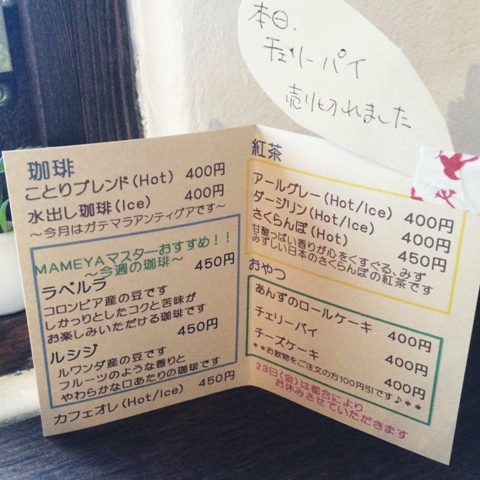 本日、
チェリーパイ
売り切れました
珈琲
ことりブレンド(Hot) 400円
水出し珈琲(Ice) 400円
～今月はガテマラアンティグアです～
MAMEYAマスターおすすめ!!
～今週の珈琲～
ラベルラ 450円
コロンビア産の豆です
しかっりとしたコクと苦味が
お楽しみいただける珈琲です
ルシジ 450円
ルワンダ産の豆です
フルーツのような香りと
やわらかな口あたりの珈琲です
カフェオレ(Hot/Ice) 450円
紅茶
アールグレー(Hot/Ice) 400円
ダージリン(Hot/Ice) 400円
さくらんぼ(Hot) 450円
甘酸っぱい香りが心をくすぐる、みず
みずしい日本のさくらんぼの紅茶です
おやつ
あんずのロールケーキ 400円
チェリーパイ 400円
チーズケーキ 400円
**お飲物をご注文の方100円引です♪**
23日(金)は都合により
お休みさせていただきます